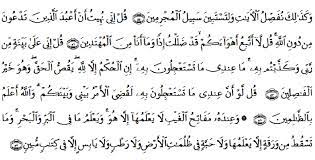 وَكَذَٰلِكَ نُفَصِّلُ ٱلْـَٔايَـٰتِ وَلِتَسْتَبِينَ سَبِيلُ ٱلْمُجْرِمِينَ ۝ قُلْ إِنِّى نُهِيتُ أَنْ أَعْبُدَ ٱلَّذِينَ تَدْعُونَ
مِن دُونِ ٱللَّهِ قُل لَّآ أَتَّبِعُ أَهْوَآءَكُمْ قَدْ ضَلَلْتُ إِذًا وَمَآ أَنَا۠ مِنَ ٱلْمُهْتَدِينَ ۝ قُلْ إِنِّى عَلَىٰ بَيِّنَةٍ مِّن
رَّبِّى وَكَذَّبْتُم بِهِۦ مَا عِندِى مَا تَسْتَعْجِلُونَ بِهِۦٓ إِنِ ٱلْحُكْمُ إِلَّا لِلَّهِ يَقُصُّ ٱلْحَقَّ وَهُوَ خَيْرُ
ٱلْفَـٰصِلِينَ ۝ قُل لَّوْ أَنَّ عِندِى مَا تَسْتَعْجِلُونَ بِهِۦ لَقُضِىَ ٱلْأَمْرُ بَيْنِى وَبَيْنَكُمْ وَٱللَّهُ أَعْلَمُ
بِٱلظَّـٰلِمِينَ ۝ وَعِندَهُۥ مَفَاتِحُ ٱلْغَيْبِ لَا يَعْلَمُهَآ إِلَّا هُوَ وَيَعْلَمُ مَا فِى ٱلْبَرِّ وَٱلْبَحْرِ وَمَا
تَسْقُطُ مِن وَرَقَةٍ إِلَّا يَعْلَمُهَا وَلَا حَبَّةٍ فِى ظُلُمَـٰتِ ٱلْأَرْضِ وَلَا رَطْبٍ وَلَا يَابِسٍ إِلَّا فِى كِتَـٰبٍ مُّبِينٍ